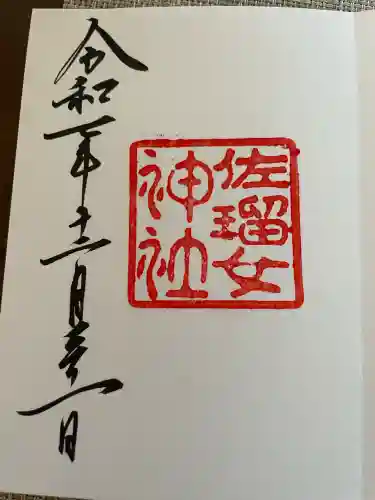 佐瑠女
神社
令和年十二月一日